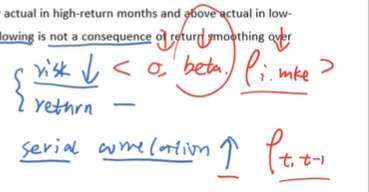 actual in high-return months and above actual in low-
lowing is not a consequence of return smoothing over
{ risk ↓ < σ, beta. ρi.mke >
return —
serial correlation ↑ ρt,t-1